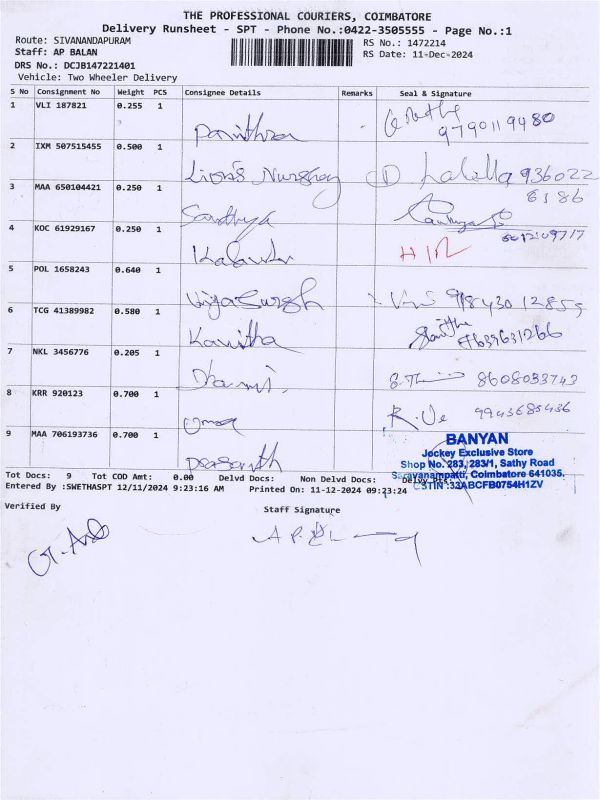 THE PROFESSIONAL COURIERS, COIMBATORE
Delivery Runsheet - SPT - Phone No.:0422-3505555 - Page No.:1
Route: SIVANANDAPURAM RS No.: 1472214
Staff: AP BALAN RS Date: 11-Dec-2024
DRS No.: DCJB147221401
Vehicle: Two Wheeler Delivery
S No Consignment No Weight PCS Consignee Details Remarks Seal & Signature
1 VLI 187821 0.255 1 Pavithra 9790119480
2 IXM 507515455 0.500 1 Lions Nursery 936022
6186
3 MAA 650104421 0.250 1 Sandhya
4 KOC 61929167 0.250 1 H/R
5 POL 1658243 0.640 1 Vijaysuresh
6 TCG 41389982 0.580 1 Kavitha 9639631266
7 NKL 3456776 0.205 1 8608033743
8 KRR 920123 0.700 1 9943685436
9 MAA 706193736 0.700 1 Prasanth
BANYAN
Jockey Exclusive Store
Shop No. 283, 283/1, Sathy Road
Saravanampatti, Coimbatore 641035.
GSTIN :33ABCFB0754H1ZV
Tot Docs: 9 Tot COD Amt: 0.00 Delvd Docs: Non Delvd Docs: Delvy Pts:
Entered By :SWETHASPT 12/11/2024 9:23:16 AM Printed On: 11-12-2024 09:23:24
Verified By Staff Signature